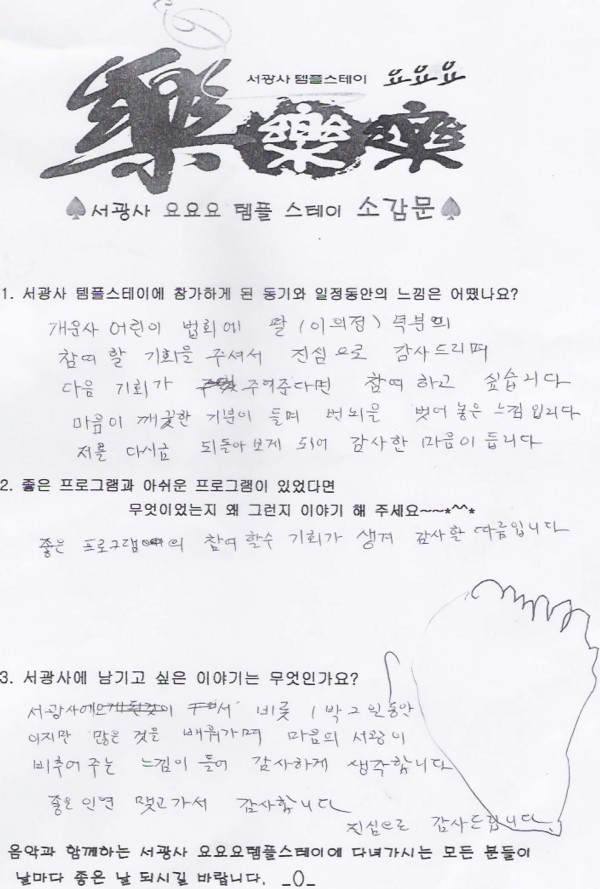 서광사 템플스테이 요요요
樂 樂 樂
♠서광사 요요요 템플 스테이 소감문♠
1. 서광사 템플스테이에 참가하게 된 동기와 일정동안의 느낌은 어땠나요?
개운사 어린이 법회에 딸 (이의정) 덕분의
참여 할 기회을 주셔서 진심으로 감사드리며
다음 기회가 주어준다면 참여 하고 싶습니다
마음이 깨끗한 기분이 들며 번뇌을 벗어 놓은 느낌입니다
저를 다시금 되돌아 보게 되어 감사한 마음이 듭니다
2. 좋은 프로그램과 아쉬운 프로그램이 있었다면
무엇이었는지 왜 그런지 이야기 해 주세요~~*^^*
좋은 프로그램의 참여 할수 기회가 생겨 감사할 따름입니다
3. 서광사에 남기고 싶은 이야기는 무엇인가요?
서광사에 비롯 1박 2일동안
이지만 많은 것을 배워가며 마음의 서광이
비추어 주는 느낌이 들어 감사하게 생각합니다
좋은 인연 맺고가서 감사합니다
진심으로 감사드립니다
음악과 함께하는 서광사 요요요템플스테이에 다녀가시는 모든 분들이
날마다 좋은 날 되시길 바랍니다. _()_